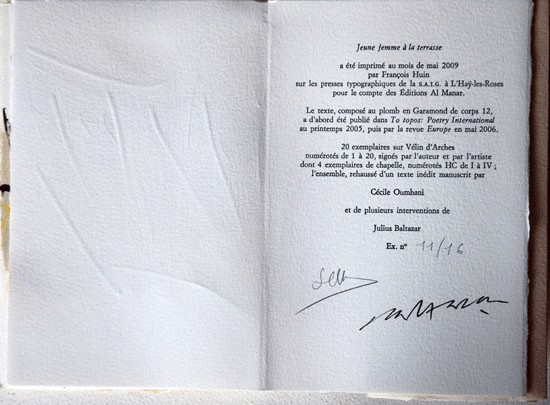 Jeune femme à la terrasse
a été imprimé au mois de mai 2009
par François Huin
sur les presses typographiques de la S.A.I.G. à L'Haÿ-les-Roses
pour le compte des Éditions Al Manar.
Le texte, composé au plomb en Garamond de corps 12,
a d'abord été publié dans To topos: Poetry International
au printemps 2005, puis par la revue Europe en mai 2006.
20 exemplaires sur Vélin d'Arches
numérotés de 1 à 20, signés par l'auteur et par l'artiste
dont 4 exemplaires de chapelle, numérotés HC de I à IV ;
l'ensemble, rehaussé d'un texte inédit manuscrit par
Cécile Oumhani
et de plusieurs interventions de
Julius Baltazar
Ex. nº 11/16